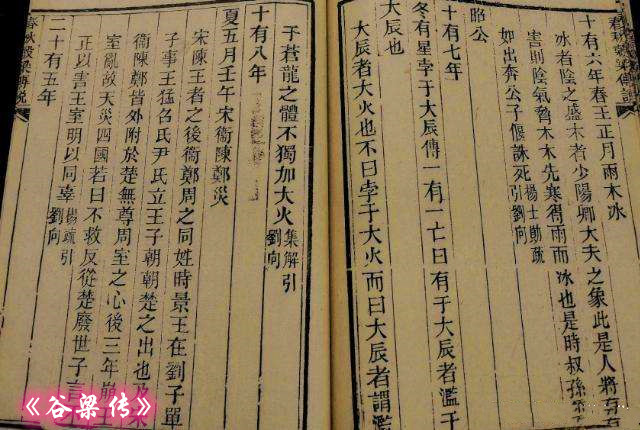 春秋穀梁傳說
十有六年春王正月雨木冰
冰者陰之盛木者少陽卿大夫之象此是人將有
害則陰氣脅木木先寒得雨而冰也是時叔孫
如出奔公子偃誅死楊士勛疏引劉向
昭公
十有七年
冬有星孛于大辰傳一有一亡曰有于大辰者濫于
大辰也
大辰者大火也不曰孛于大火而曰大辰者謂濫
于蒼龍之體不獨加大火集解引劉向
十有八年
夏五月壬午宋衞陳鄭災
宋陳王者之後衞鄭周之同姓時景王在劉子單
子事王猛召氏尹氏立王子朝朝楚之出也及宋
衞陳鄭皆外附於楚無尊周室之心後三年崩王
室亂故天災四國若曰不救反從楚廢世子言
正以害王室明以同辜楊疏引劉向
二十有五年
春秋穀梁傳說
《谷梁传》